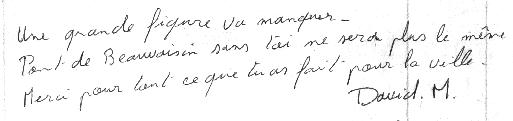 Une grande figure va manquer -
Pont de Beauvoisin sans toi ne sera plus le même
Merci pour tout ce que tu as fait pour la ville -
David. M.